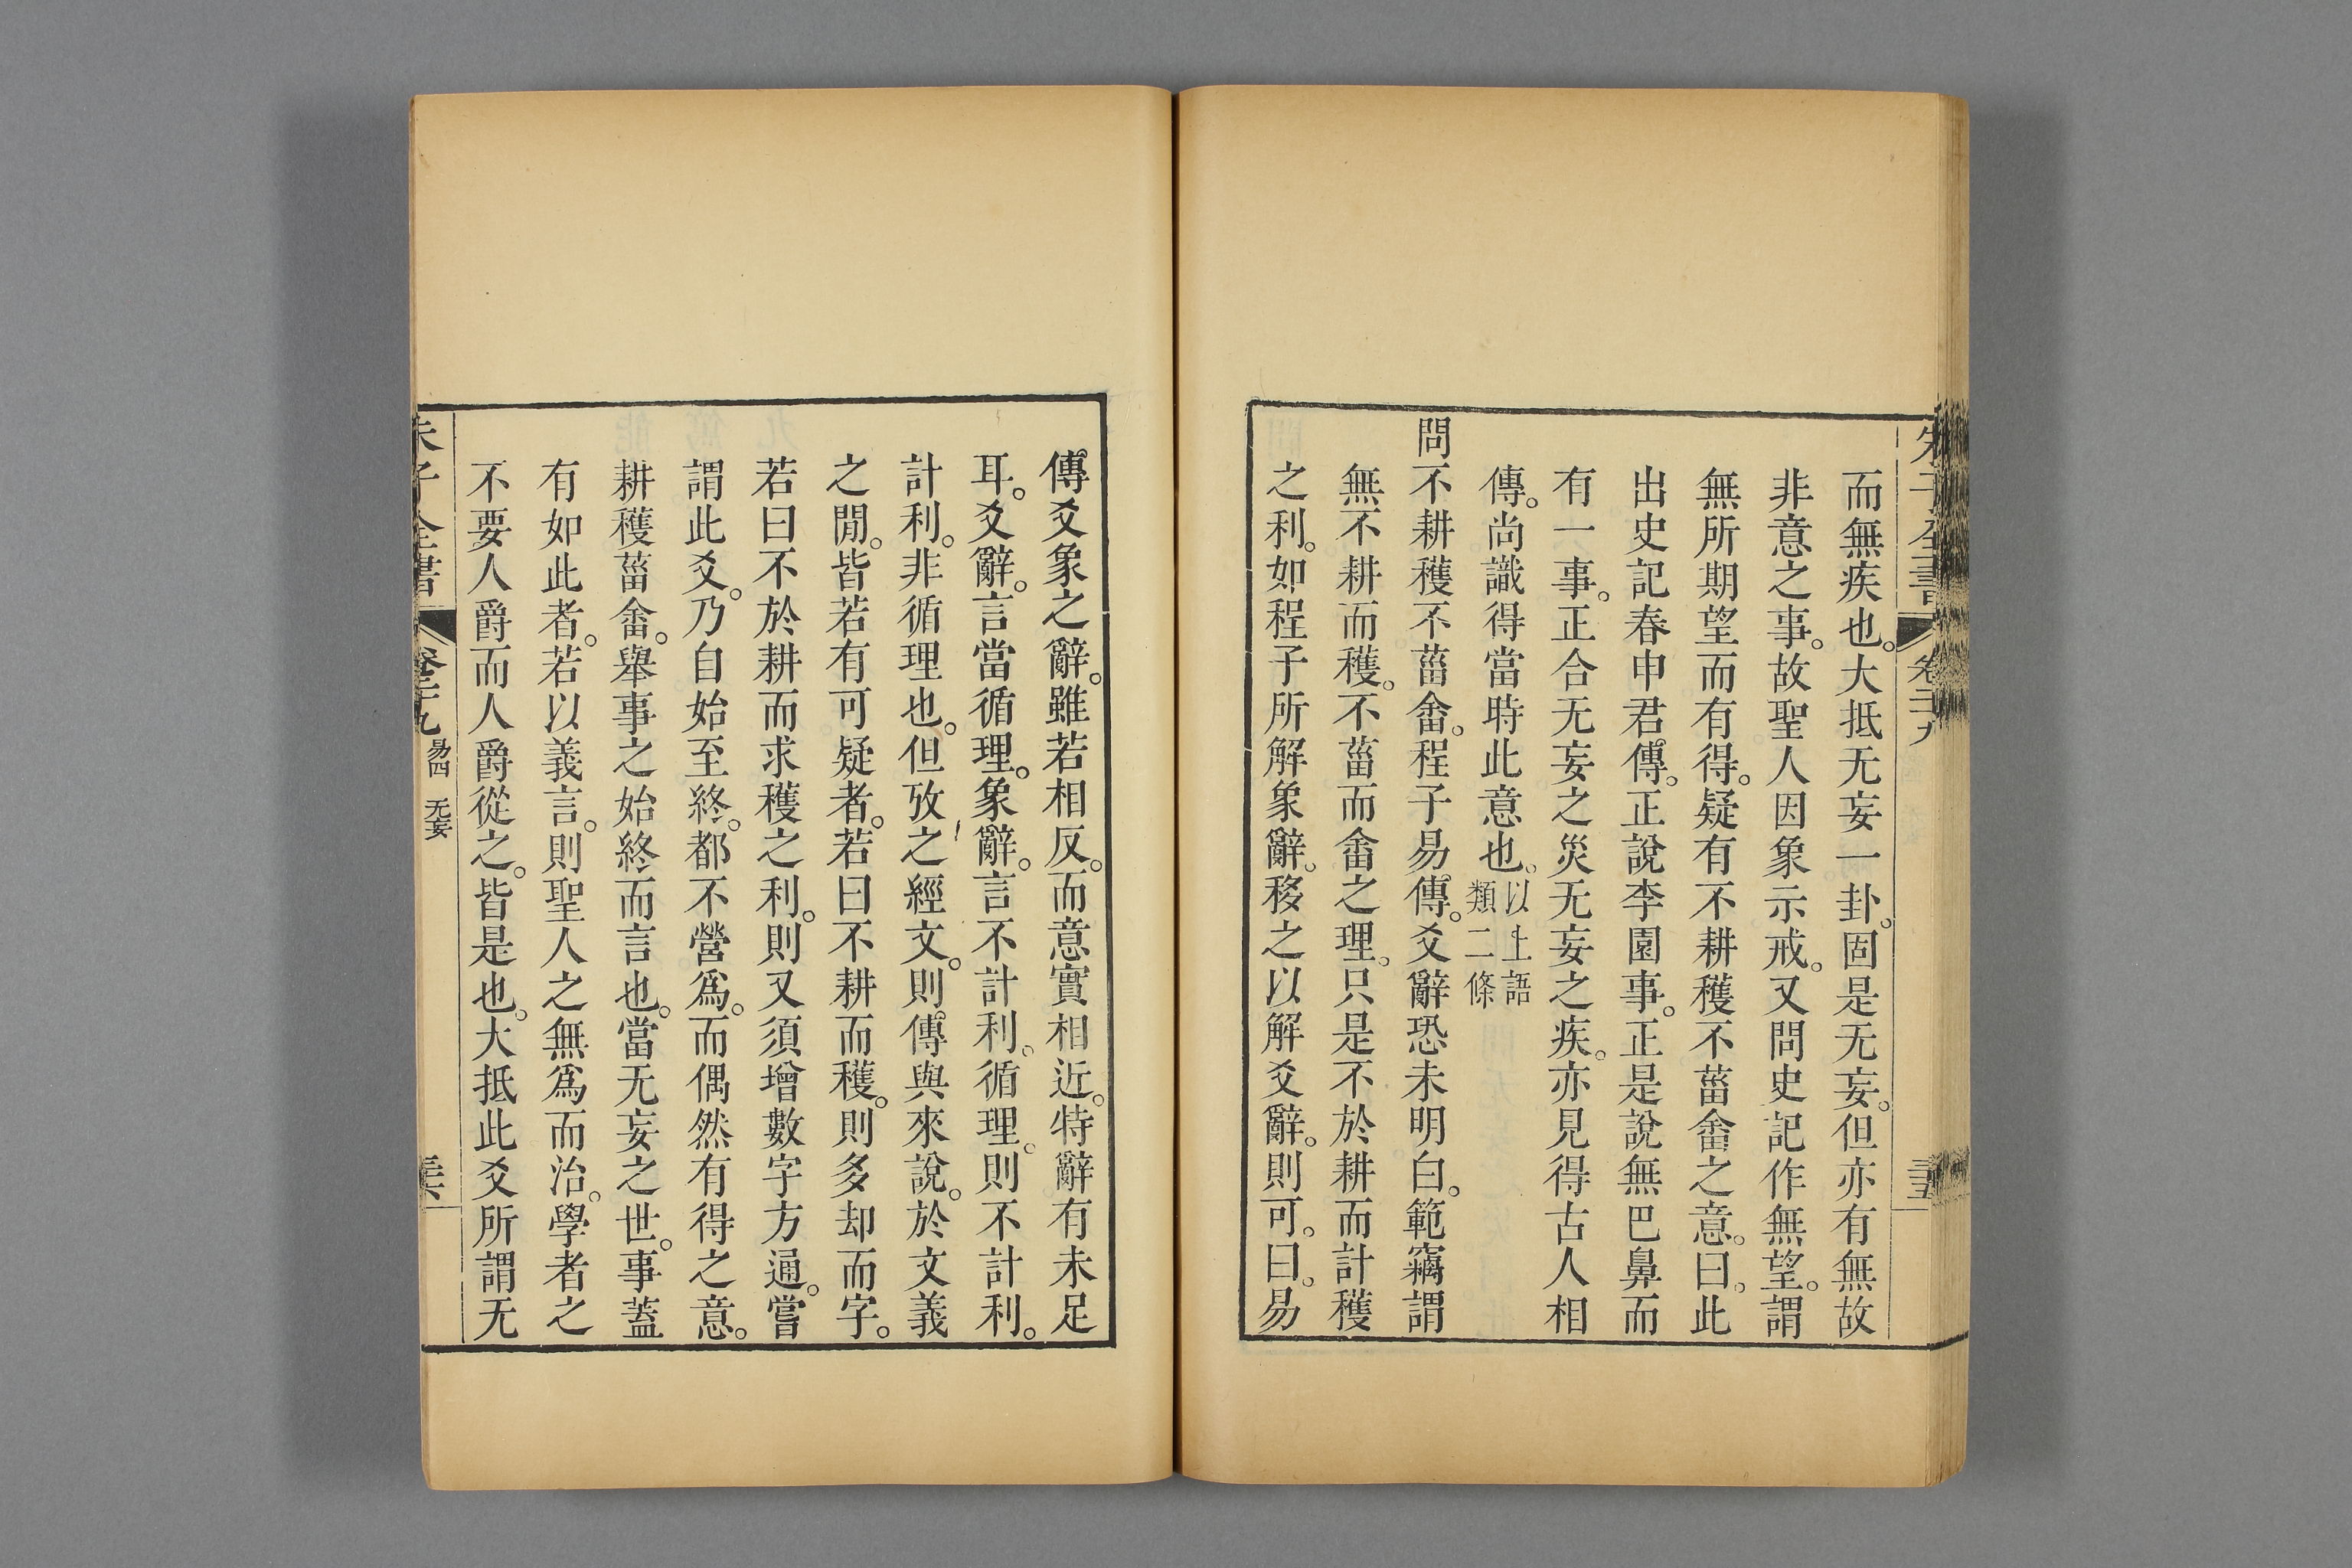 而無疾也。大抵无妄一卦。固是无妄。但亦有無故
非意之事。故聖人因象示戒。又問史記作無望。謂
無所期望而有得。疑有不耕穫不菑畬之意。曰。此
出史記春申君傳。正說李園事。正是說無巴鼻而
有一事。正合无妄之災无妄之疾。亦見得古人相
傳。尚識得當時此意也。以上語
類二條
問不耕穫不菑畬。程子易傳。爻辭恐未明白。範竊謂
無不耕而穫。不菑而畬之理。只是不於耕而計穫
之利。如程子所解象辭。移之以解爻辭。則可。曰。易
傳爻象之辭。雖若相反。而意實相近。特辭有未足
耳。爻辭。言當循理。象辭。言不計利。循理。則不計利。
計利。非循理也。但攷之經文。則傳與來說。於文義
之閒。皆若有可疑者。若曰不耕而穫。則多却而字。
若曰不於耕而求穫之利。則又須增數字方通。嘗
謂此爻。乃自始至終。都不營爲。而偶然有得之意。
耕穫菑畬。舉事之始終而言也。當无妄之世。事蓋
有如此者。若以義言。則聖人之無爲而治。學者之
不要人爵而人爵從之。皆是也。大抵此爻所謂无
朱子全書 卷二十九 易四 无妄